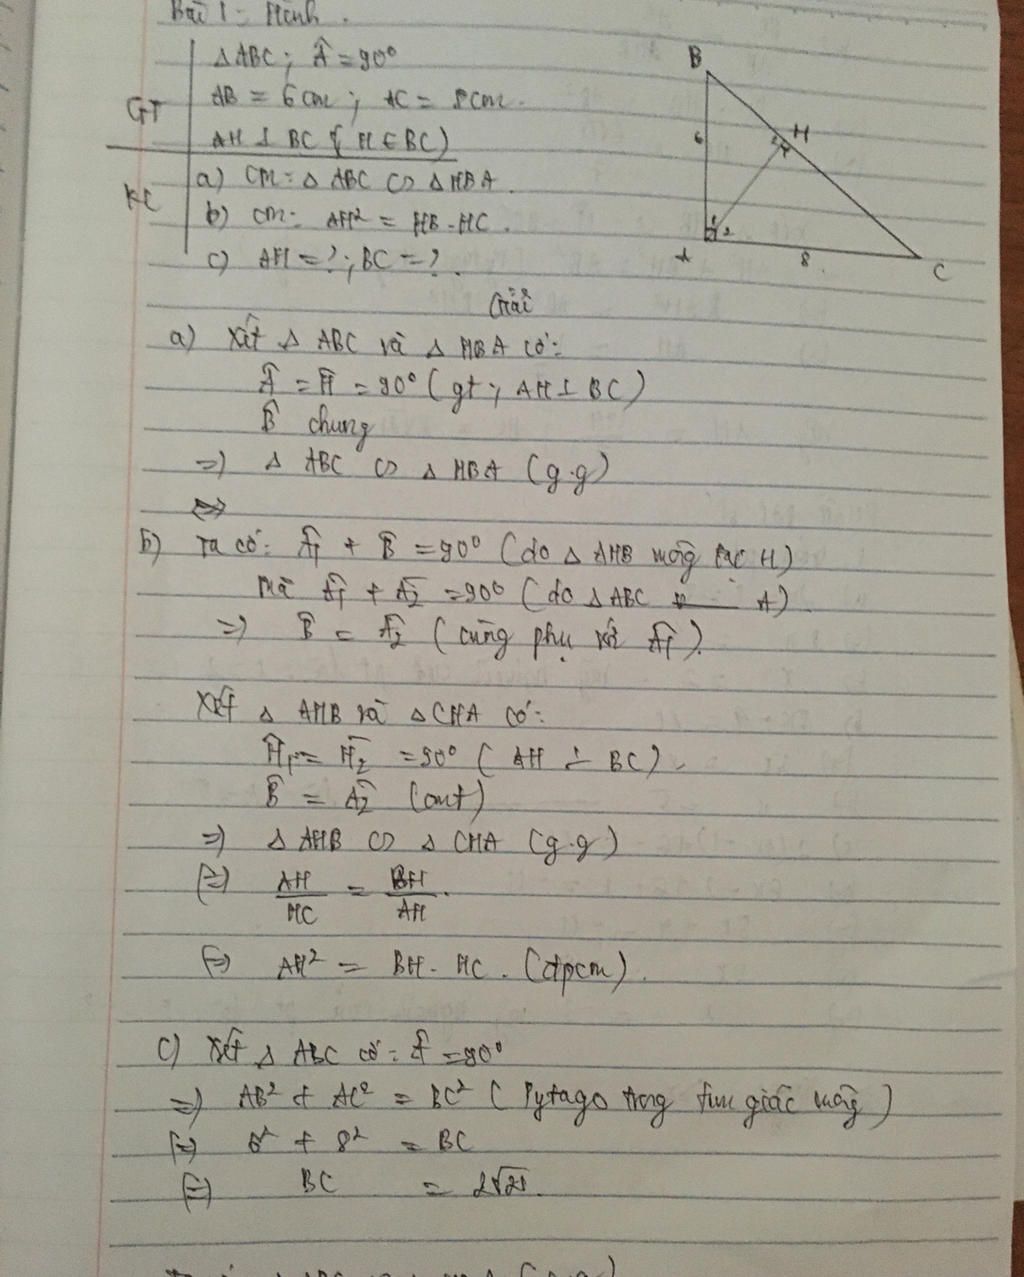 Bài 1: Hình.
GT
△ABC; Â = 90°
AB = 6cm; AC = 8cm.
AH ⊥ BC (H ∈ BC)
KL
a) CM: △ ABC ∽ △ HBA.
b) CM: AH² = HB.HC.
c) AH = ?; BC = ?.
B
H
6
1
2
A
8
C
Giải
a) Xét △ ABC và △ HBA có:
Â = Ĥ = 90° (gt; AH ⊥ BC)
B̂ chung
=> △ ABC ∽ △ HBA (g.g)
b) Ta có: Â₁ + B̂ = 90° (do △ AHB vuông tại H)
Mà Â₁ + Â₂ = 90° (do △ABC A).
=> B̂ = Â₂ (cùng phụ với Â₁).
Xét △ AHB và △CHA có:
Ĥ₁ = Ĥ₂ = 90° (AH ⊥ BC).
B̂ = Â₂ (cmt)
=> △ AHB ∽ △ CHA (g.g)
(=) AH/HC = BH/AH.
(=) AH² = BH.HC. (đpcm).
c) Xét △ ABC có: Â = 90°
=> AB² + AC² = BC² (Pytago trong tam giác vuông)
(=) 6² + 8² = BC
(=) BC =